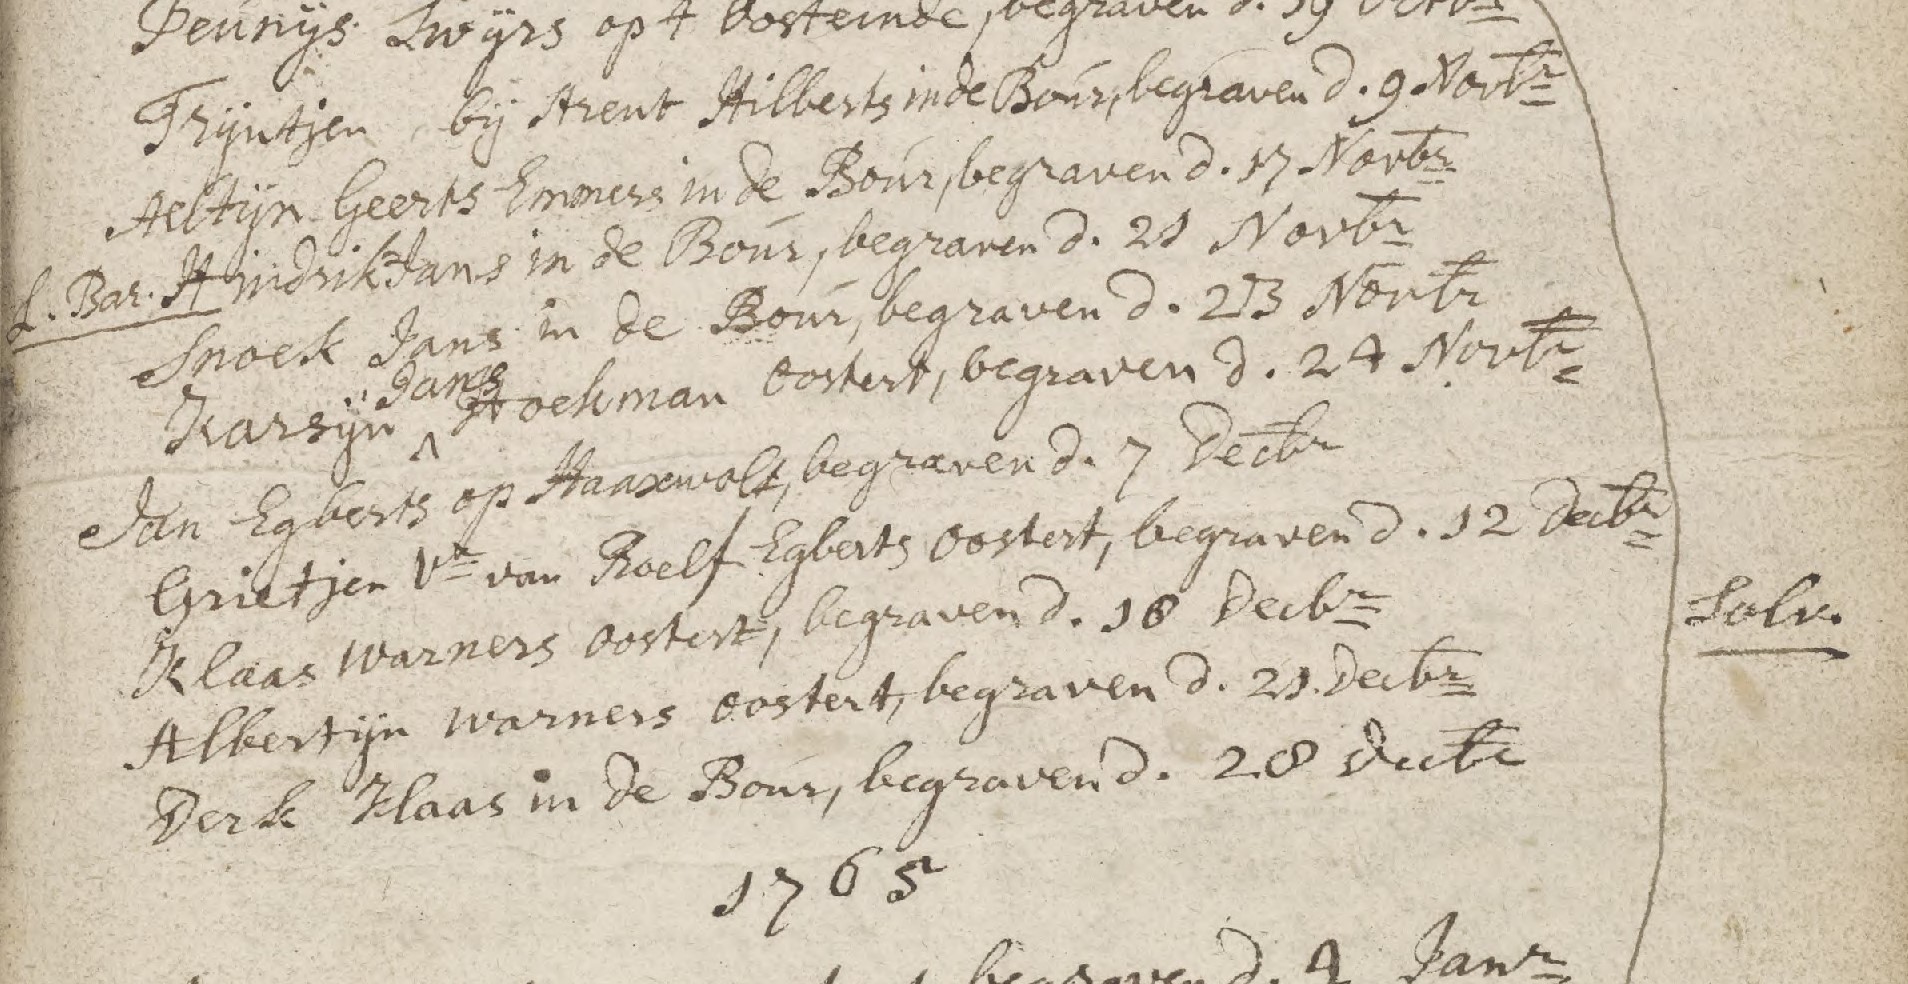 Peunys Zwyrs op 't Oosteinde, begraven d. 19 Octbr
Trijntjen, bij Arent Hilberts in de Boúr, begraven d. 9 Novbr
Aeltijn Geerts Emmers in de Boúr, begraven d. 17 Novbr
L. Bar. Hindrik Jans in de Boúr, begraven d. 21 Novbr
Snoek Jans in de Boúr, begraven d. 23 Novbr
Jans
Karsijn ^ Hoekman Oostert, begraven d. 24 Novbr
Jan Egberts op Haaxwolt, begraven d. 7 Decbr
Grietjen Vr van Roelf Egberts Oostert, begraven d. 12 Decbr
Solv.
Klaas Warners Oostert, begraven d. 18 Decbr
Albertijn Warners Oostert, begraven d. 21. Decbr
Derk Klaas in de Boúr, begraven d. 28 Decbr
1765
begraven d. 4 Janr